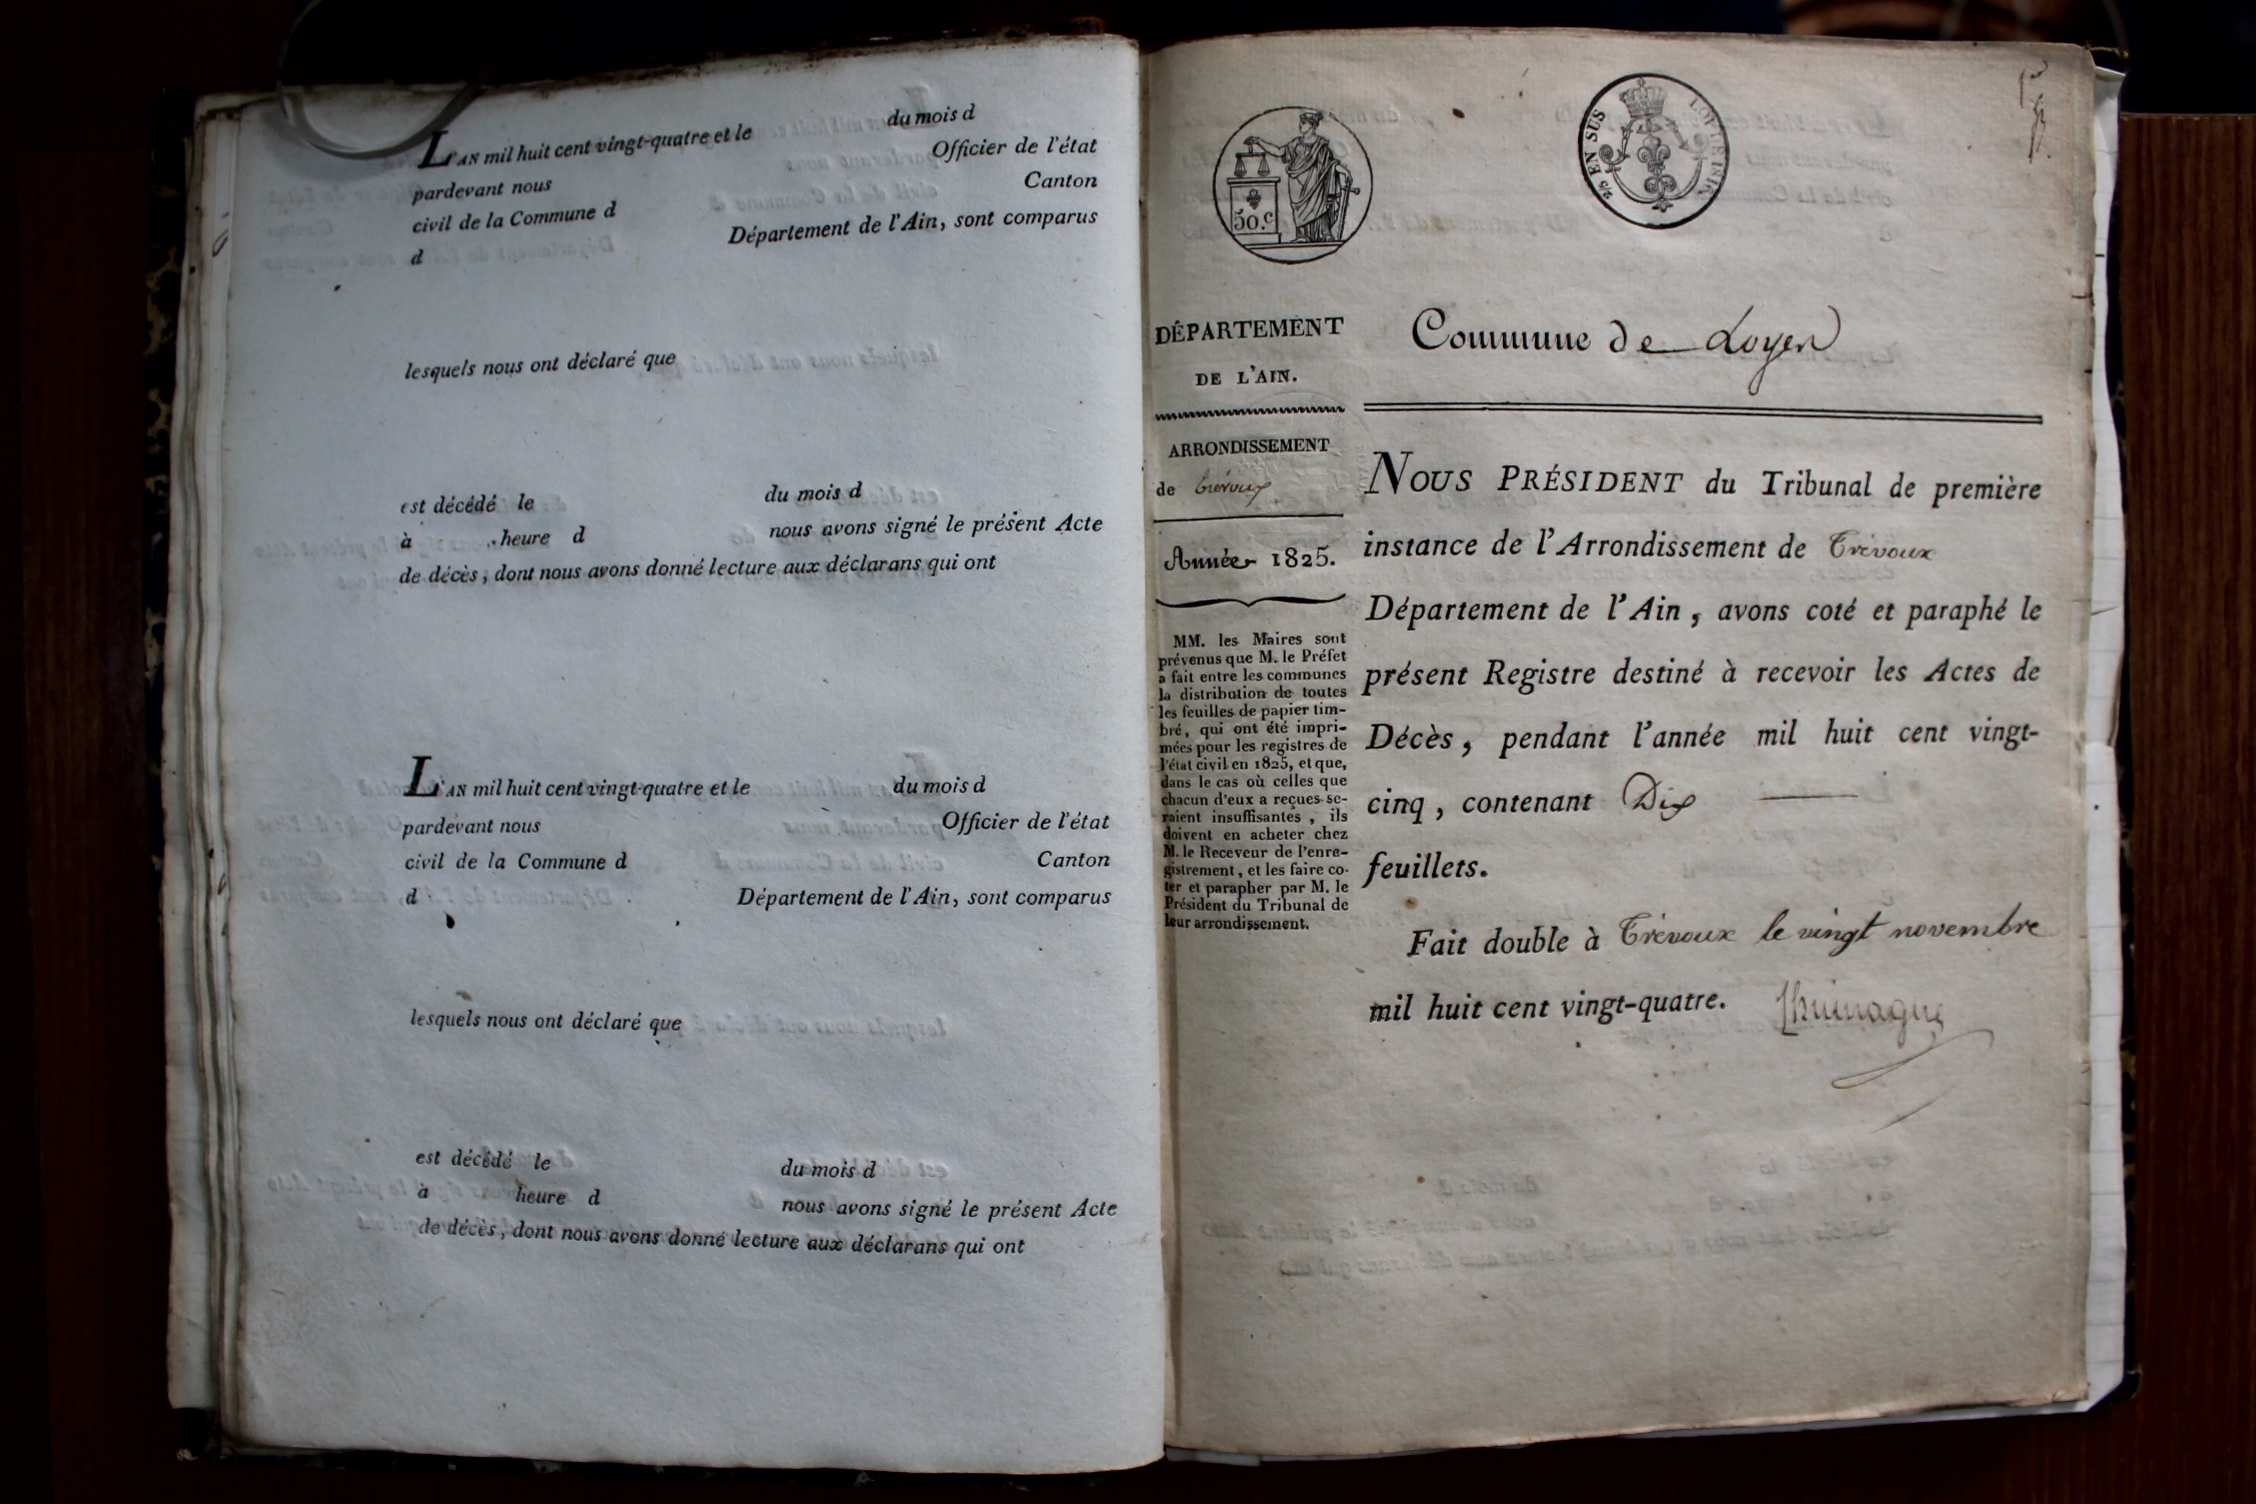 L'AN mil huit cent vingt-quatre et le du mois d
pardevant nous Officier de l'état
civil de la Commune d Canton
d Département de l'Ain, sont comparus
lesquels nous ont déclaré que
est décédé le du mois d
à heure d nous avons signé le présent Acte
de décès, dont nous avons donné lecture aux déclarans qui ont
L'AN mil huit cent vingt-quatre et le du mois d
pardevant nous Officier de l'état
civil de la Commune d Canton
d Département de l'Ain, sont comparus
lesquels nous ont déclaré que
est décédé le du mois d
à heure d nous avons signé le présent Acte
de décès, dont nous avons donné lecture aux déclarans qui ont
50.c
EN SUS
DÉPARTEMENT
DE L'AIN.
ARRONDISSEMENT
de Trévoux
Année 1825.
MM. les Maires sont
prévenus que M. le Préfet
a fait entre les communes
la distribution de toutes
les feuilles de papier tim-
bré, qui ont été impri-
mées pour les registres de
l'état civil en 1825, et que,
dans le cas où celles que
chacun d'eux a reçues se-
raient insuffisantes, ils
doivent en acheter chez
M. le Receveur de l'enre-
gistrement, et les faire co-
ter et parapher par M. le
Président du Tribunal de
leur arrondissement.
Commune de Loyes
NOUS PRÉSIDENT du Tribunal de première
instance de l'Arrondissement de Trévoux
Département de l'Ain, avons coté et paraphé le
présent Registre destiné à recevoir les Actes de
Décès, pendant l'année mil huit cent vingt-
cinq, contenant Dix
feuillets.
Fait double à Trévoux le vingt novembre
mil huit cent vingt-quatre.